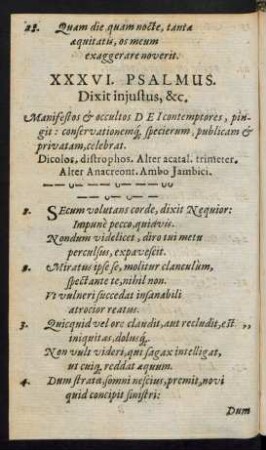 28. Quam die quam nocte, tanta
æquitatis, os meum
exaggerare noverit.
XXXVI. PSALMUS.
Dixit injustus, &c.
Manifestos & occultos DEI contemptores, pin-
git: conservationemq́; specierum, publicam &
privatam, celebrat.
Dicolos, distrophos. Alter acatal. trimeter.
Alter Anacreont. Ambo Jambici.
SEcum volutans corde, dixit Nequior:
Impunè pecco, quidvis.
Nondum videlicet, diro tui metu
perculsus, expavescit.
2. Miratus ipse se, molitur clanculùm,
spectante te, nihil non.
Vt vulneri succedat insanabili
atrocior reatus.
3. Quicquid vel ore claudit, aut recludit, est
iniquitas, dolusq́;.
Non vult videri, qui sagax intelligat,
ut cuiq; reddat æquum.
4. Dum strata, somni nescius, premit, novi
quid concipit sinistri:
Dum